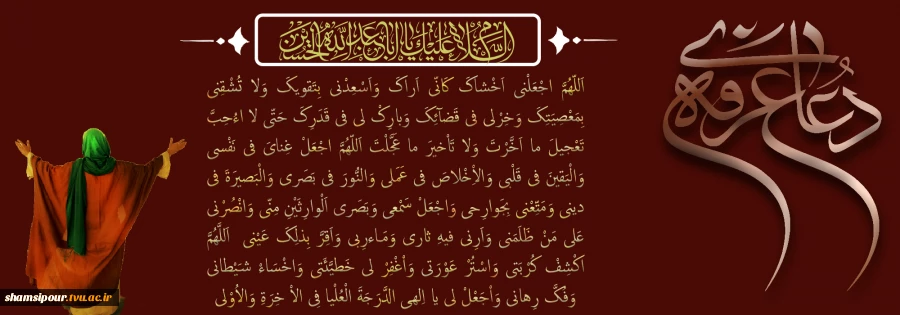 السَّلامُ عَلَيْكَ يا اَبا عَبْدِ اللهِ الْحُسَيْن
دعای عرفه
اَللّهُمَّ اجْعَلْنى اَخْشاکَ کَانّى اَراکَ وَاَسْعِدْنى بِتَقویکَ وَلا تُشْقِنى
بِمَعْصِیَتِکَ وَخِرْلى فى قَضآئِکَ وَبارِکْ لى فى قَدَرِکَ حَتّى لا اءُحِبَّ
تَعْجیلَ ما اَخَّرْتَ وَلا تَاْخیرَ ما عَجَّلْتَ اَللّهُمَّ اجْعَلْ غِناىَ فى نَفْسى
وَالْیَقینَ فى قَلْبى وَالاِْخْلاصَ فى عَمَلى وَالنُّورَ فى بَصَرى وَالْبَصیرَةَ فى
دینى وَمَتِّعْنى بِجَوارِحى وَاجْعَلْ سَمْعى وَبَصَرى اَلْوارِثَیْنِ مِنّى وَانْصُرْنى
عَلى مَنْ ظَلَمَنى وَاَرِنى فیهِ ثارى وَمَـاءرِبى وَاَقِرَّ بِذلِکَ عَیْنى اَللَّهُمَّ
اکْشِفْ کُرْبَتى وَاسْتُرْ عَوْرَتى وَاْغْفِرْ لى خَطیَّئَتى وَاخْسَاءْ شَیْطانى
وَفُکَّ رِهانى وَاْجَعْلْ لى یا اِلهى الدَّرَجَةَ الْعُلْیا فِى الاْ خِرَةِ وَالاُوْلى
shamsipour.tvu.ac.ir